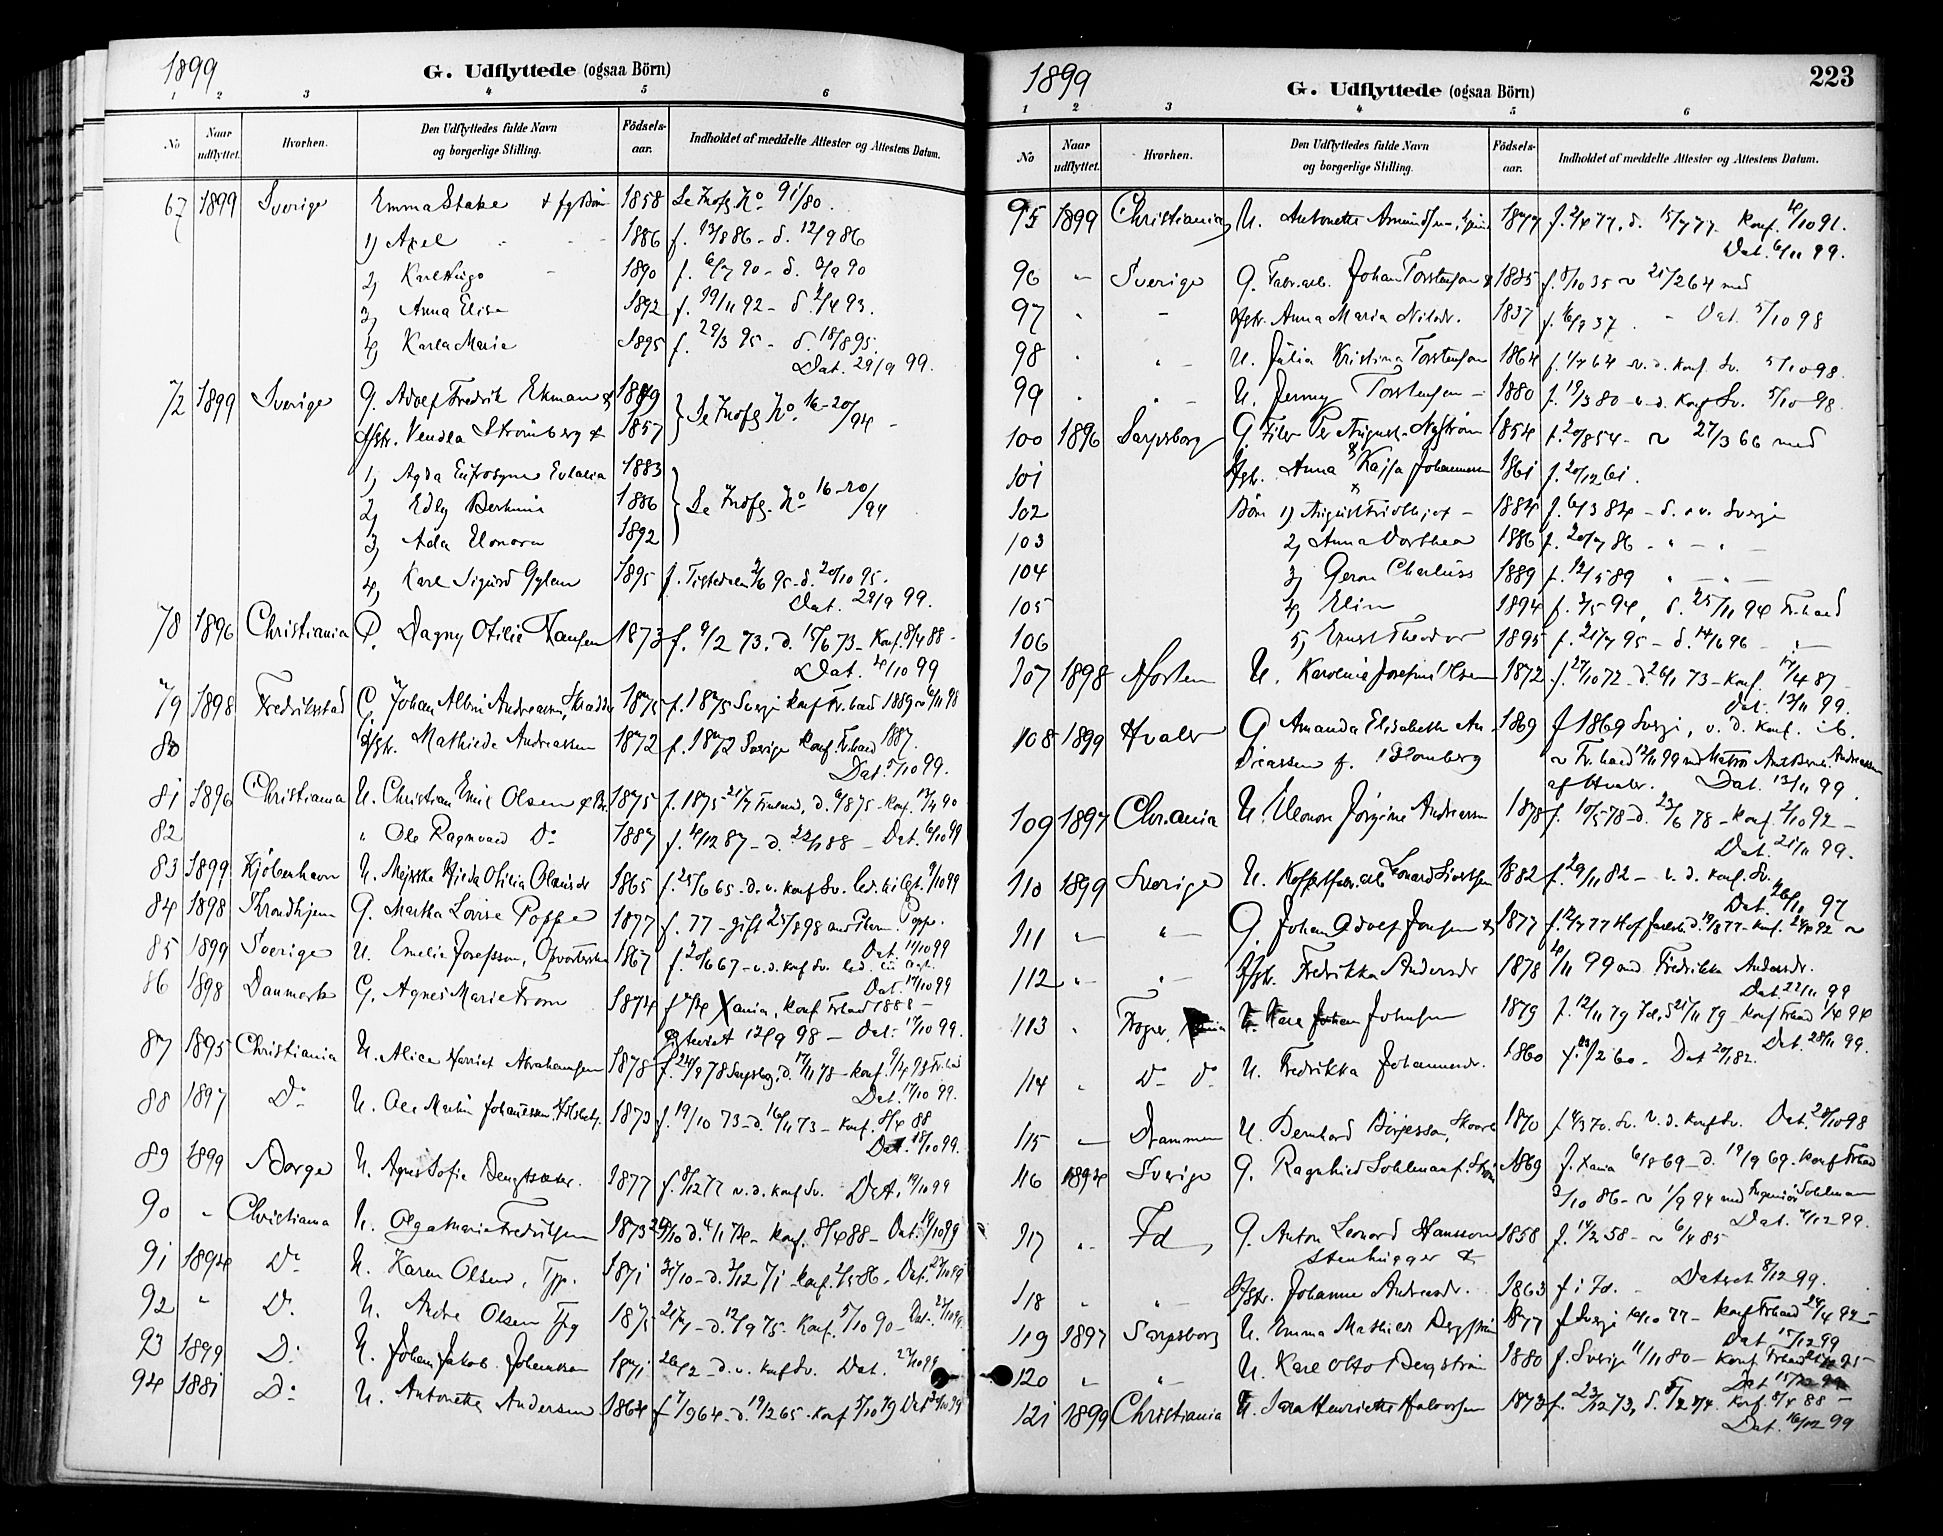 1899
G. Udflyttede (ogsaa Börn)
1 2 3 4 5 6
No
Naar udflyttet.
Hvorhen.
Den Udflyttedes fulde Navn og borgerlige Stilling.
Födsels-aar.
Indholdet af meddelte Attester og Attestens Datum.
67 1899 Sverige Emma Stake 1858 Se Indfl. No 91/80.
1) Axel 1886 f. 13/8 86 - d. 12/9 86
2) Karl Hugo 1890 f. 6/7 90 - d. 90
3) Anna Elise 1892 f. 19/11 92 - d. 2/4 93.
4) Karla Marie 1895 f. 29/3 95 - d. 18/8 95.
Dat. 29/9 99.
72 1899 Sverige G. Adolf Fredrik Ekman & Se Indfl. No 16-20/94
Hstr. Vendla Strömberg & 1857
1) Agda Eufrosyne Eulalia 1883
2) Edly 1886 Se Indfl. No 16-20/94
3) Ada Elonora 1892
4) Karl Sigurd Gylen 1895 f. Tistedalen 95 - d. 20/10 95.
Dat. 29/9 99.
78 1896 Christiania P. Dagny Otilie Hansen 1873 f. 9/2 73. d. 15/6 73 - Konf. 8/4 88 -
Dat. 4/10 99
79 1898 Fredrikstad G. Johan Albin Andreassen, 1875 f. 1875 Sverige Konf. Fr.hald 1889
80 Hstr. Mathilde Andreassen 1872 f. 1872 Sverige Konf. Fr.hald 1887.
Dat. 5/10 99.
81 1896 Christiania U. Christian Emil Olsen & Br. 1875 f. 1875 21/7 d. 6/8 75 - Konf. 13/4 90
82 " Ole Ragnvald Do 1887 f. 4/12 87 - d. 22/1 88 - Dat. 6/10 99
83 1899 Kjöbenhavn U. Hilda Otilia 1865 f. 25/6 65 - d. v. Konf. Sv. 9/10 99
84 1898 Throndhjem G. Martha Lovise Poppe 1877 f. 77 - gift 25/8 98 Poppe.
Dat. 11/10 99
85 1899 Sverige U. Emelie Josefsson, 1867 f. 20/6 67 - v. d. Konf. Sv.
Dat. 17/10 99
86 1898 Danmark G. Agnes Marie From 1874 f. Xania, Konf. Fr.hald 1888 -
12/9 98 - Dat. 17/10 99.
87 1895 Christiania U. Alice Harriet Abrahamsen 1878 f. 24/9 78 Sarpsbg, d. 17/11 78 - Konf. 9/4 93 Fr.hald
Dat. 17/10 99.
88 1897 Do U. Ole Martin Johannessen 1873 f. 19/10 73 - d. 16/11 73 - Konf. 8/4 88
Dat. 18/10 99.
89 1899 Borge U. Agnes Sofie 1877 f. 8/12 77 v. d. Konf. Sv. Dat. 19/10 99
90 " Christiania U. Olga Marie Fredriksen 1873 29/10 d. 4/1 74 - Konf. 8/4 88 - Dat. 19/10 99
91 1894 Do U. Karen Olsen, Tjp. 1871 31/10 - d. 3/12 71 - Konf. 86 - Dat.
92 " Do U. Andre Olsen 1875 21/7 - d. 12/9 75 - Konf. 5/10 90 - Dat.
93 1899 Do U. Johan Jakob Johansson 1871 26/2 - d. v. Konf. Sv. Dat. 27/10 99
94 1881 Do U. Antonette Andersen 1864 f. 7/9 64 - d. 19/2 65 - Konf. 5/10 79
1899
G. Udflyttede (ogsaa Börn)
223
1 2 3 4 5 6
No
Naar udflyttet.
Hvorhen.
Den Udflyttedes fulde Navn og borgerlige Stilling.
Födsels-aar.
Indholdet af meddelte Attester og Attestens Datum.
95 1899 Christiania U. Antonette Amundsen 1877 f. 2/4 77, d. 15/7 77 - Konf. 4/10 91.
Dat. 6/11 99.
96 " Sverige G. Fabr.arb. Johan Torstensen & 1835 f. 8/10 35 ~ 21/2 64 med
97 Hstr. Anna Maria Nilsdr. 1837 f. 6/9 37. - Dat. 5/10 98
98 U. Julia Kristina Torstensen 1864 f. 64 - v. d. Konf. Sv. 5/10 98.
99 U. Jenny Torstensen - 1880 f. 19/3 80 - v. d. Konf. Sv. 5/10 98.
100 1896 Sarpsborg G. Per August Nyström 1854 f. 20/8 54 - ~ 27/3 66 med
101 Hstr. Anna Kajsa Johannessen 1861 f. 20/12 61.
102 Börn 1) August Fridthjof - 1884 f. 6/3 84 - d. v. Sverige
103 2) Anna Dorthea 1886 f. 20/7 86 - " - "
104 3) Gerda Charlius 1889 f. 12/5 89
105 4) Elin 1894 f. 3/5 94, d. 25/11 94 Fr.hald
106 5) Ernst Theodor 1895 f. 21/7 95 - d. 14/6 96
107 1898 Horten U. Karoline Josefine Olsen 1872 f. 27/10 72 - d. 26/1 73 - Konf. 17/4 87 -
Dat. 13/11 99.
108 1899 Hvaler G. Amanda Elisabeth An- 1869 f. 1869 Sverige, v. d. Konf. ib.
dreassen f. Blomberg ~ Fr.hald 12/11 99 med Andreassen
af Hvaler. Dat. 13/11 99.
109 1897 Chr.ania U. Elenore Jörgine Andersen 1878 f. 10/5 78 - d. 23/6 78 - Konf. 2/10 92 -
Dat. 21/11 99.
110 1899 Sverige U. Leonard Sivertsen 1882 f. 29/11 82 - v. d. Konf. Sv.
Dat. 97
111 " " G. Johan Adolf Jonsen & 1877 f. 12/7 77 d. 19/8 77 - Konf. 24/4 92 ~
112 Hstr. Fredrikke Andersdr. 1878 4/11 99 med Fredrikke Andersdr.
Dat. 22/11 99
113 Frogner, U. Karl Johan Johnsen 1879 f. 12/11 79 d. 21/11 79 - Konf. Fr.hald 1/4 94
Dat. 28/11 99.
114 Do Do U. Fredrikka Johannesdr. 1860 f. 23/2 60 - Dat. 20/1 82.
115 Drammen U. Bernhard Börjesson, 1870 f. 4/3 70. Sv. v. d. Konf. Sv. Dat. 28/10 98
116 1894 Sverige G. Ragnhild Sohlman f. Ström 1869 f. Xania 6/8 69 - d. 19/9 69 - Konf. Fr.hald
3/10 86 - ~ 1/9 94 med Ingeniör Sohlman
Dat. 4/12 99.
117 " Id G. Anton Leonard Hansson 1858 f. 14/2 58 - ~ 6/4 85
Stenhugger &
118 Hstr. Johanne Andersdr. 1863 f. i Id. - Dateret 8/12 99.
119 1897 Sarpsborg U. Emma Mathilde Bergström 1877 f. Sverige 14/10 77 - Konf. Fr.hald 24/4 92 -
Dat. 15/12 99
120 U. Karl Otto Bergström 1880 f. Sverige 11/11 80 - Konf. Fr.hald 95 -
Dat. 15/12 99
121 1899 Christiania U. Sara Henriette Halvorsen 1873 f. 23/12 73, d. 5/2 74. Konf. 8/4 88 -
Dat. 16/12 99